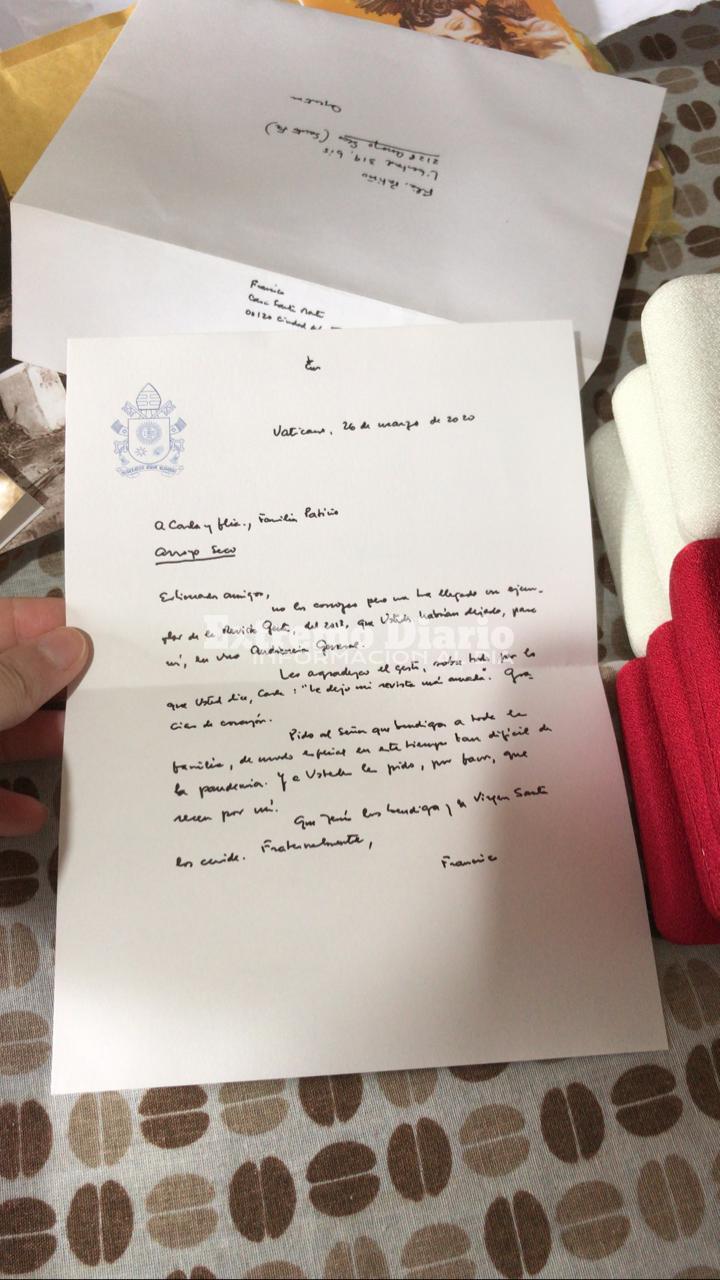 Flia. Patiño
Libertad 319, bis
2128 Arroyo Seco (Santa Fe)
Francisco
Casa Santa Marta
00120 Ciudad del
Vaticano, 26 de marzo de 2020
A Carla y flia., Familia Patiño
Arroyo Seco
Estimados amigos,
no los conozco pero me ha llegado un ejem-
plar de la Revista del 2013, que Ustedes habrían dejado, para
mí, en una Audiencia General.
Les agradezco el gesto, sobre todo por lo
que Usted dice, Carla: "le dejo mi revista más amada". Gra-
cias de corazón.
Pido al Señor que bendiga a toda la
familia, de modo especial en este tiempo tan difícil de
la pandemia. Y a Ustedes les pido, por favor, que
recen por mí.
Que Jesús los bendiga y la Virgen Santa
los cuide. Fraternalmente,
Francisco
Extremo Diario
INFORMACION AL DIA